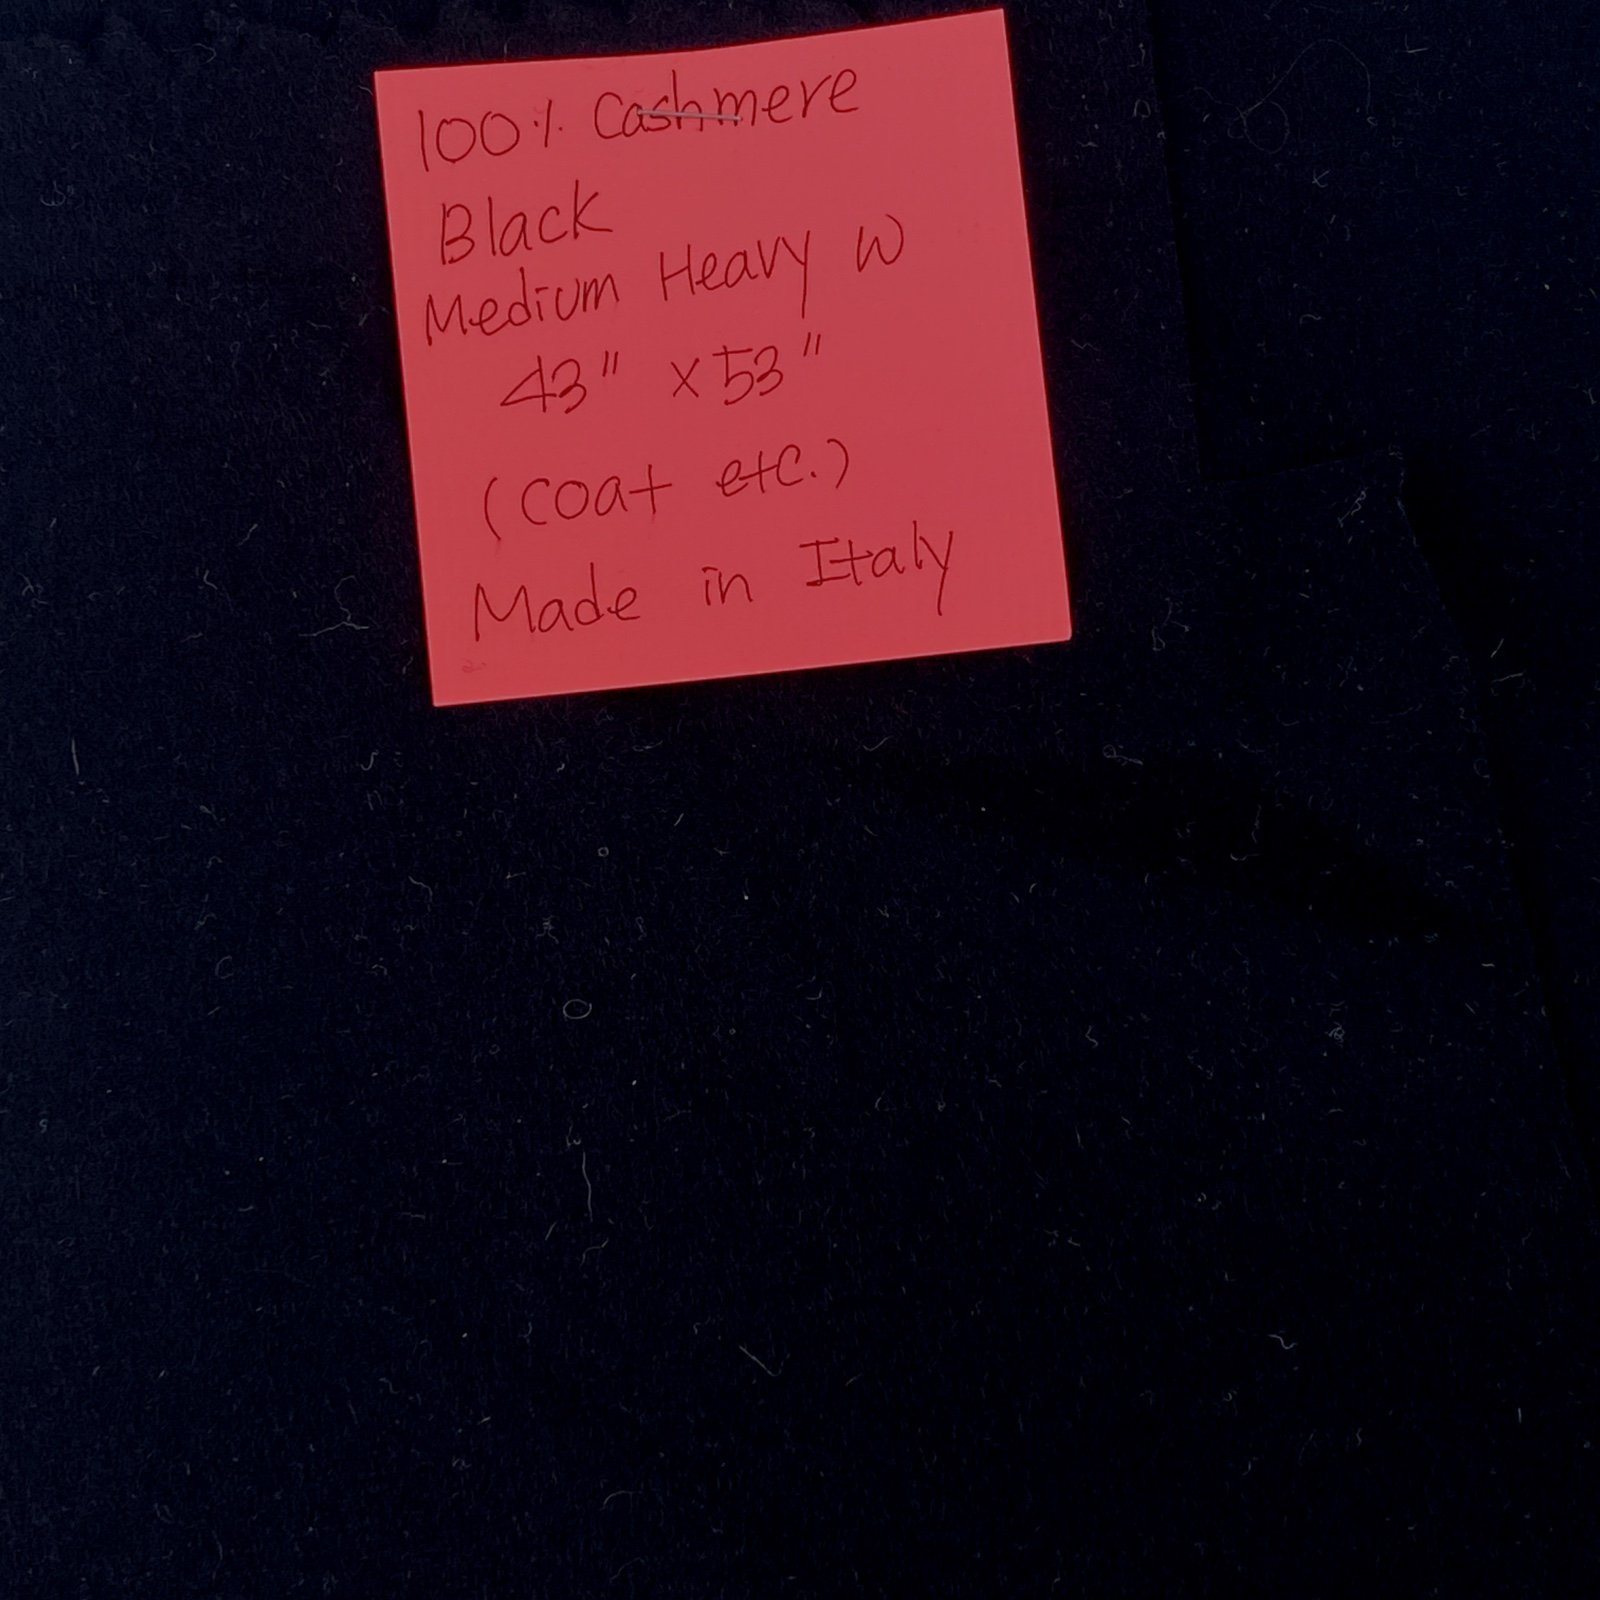 100% Cashmere
Black
Medium Heavy W
43" x 53"
(coat etc.)
Made in Italy